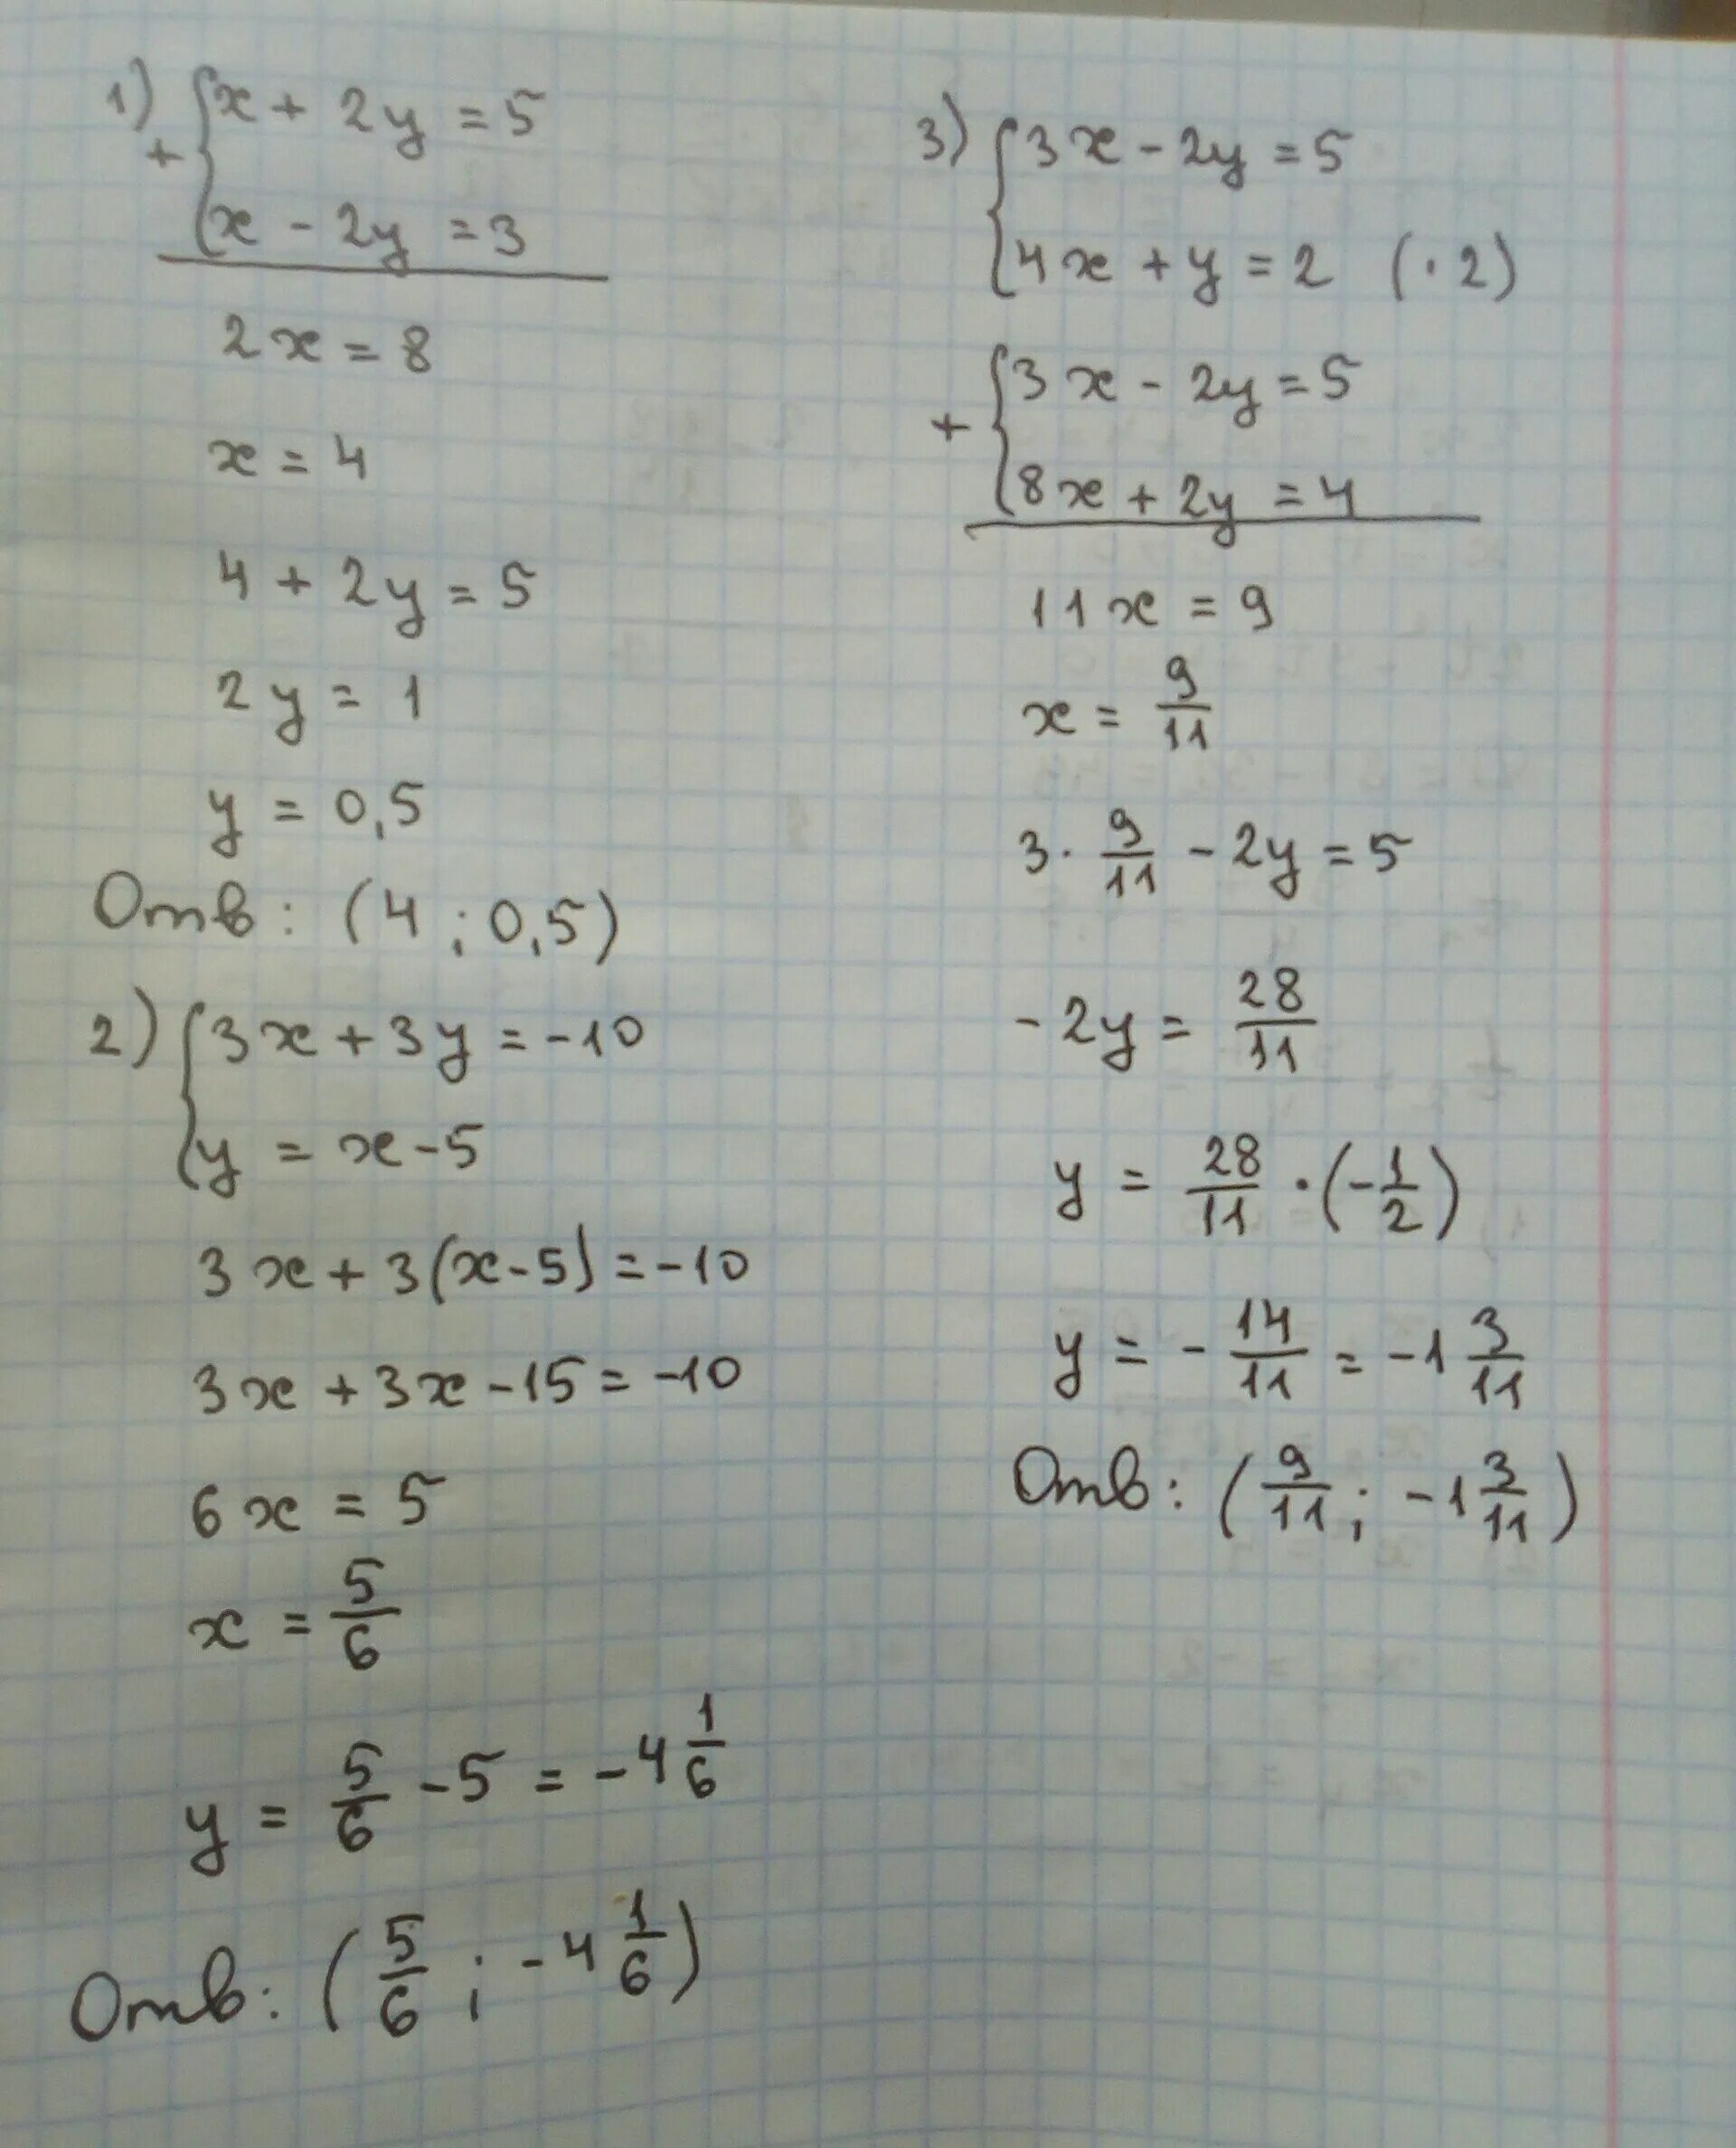 1) + { x + 2y = 5
x - 2y = 3
2x = 8
x = 4
4 + 2y = 5
2y = 1
y = 0,5
Отв: (4 ; 0,5)
2) { 3x + 3y = -10
y = x - 5
3x + 3(x-5) = -10
3x + 3x - 15 = -10
6x = 5
x = 5/6
y = 5/6 - 5 = -4 1/6
Отв: (5/6 ; -4 1/6)
3) { 3x - 2y = 5
4x + y = 2 (· 2)
+ { 3x - 2y = 5
8x + 2y = 4
11x = 9
x = 9/11
3 · 9/11 - 2y = 5
-2y = 28/11
y = 28/11 · (-1/2)
y = - 14/11 = -1 3/11
Отв: (9/11 ; -1 3/11)